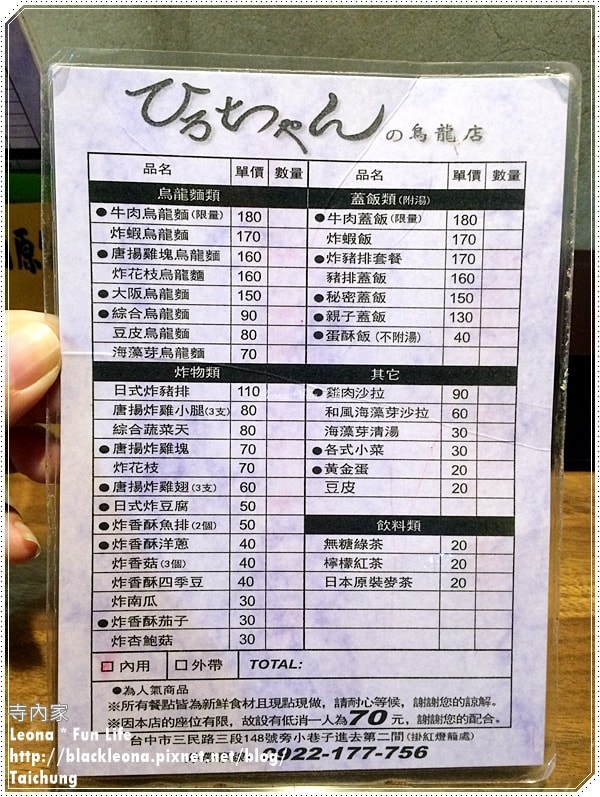 ひろちゃんの烏龍店
品名 單價 數量 品名 單價 數量
烏龍麵類
●牛肉烏龍麵(限量) 180
炸蝦烏龍麵 170
●唐揚雞塊烏龍麵 160
炸花枝烏龍麵 160
●大阪烏龍麵 150
●綜合烏龍麵 90
豆皮烏龍麵 80
海藻芽烏龍麵 70
炸物類
日式炸豬排 110
唐揚炸雞小腿(3支) 80
綜合蔬菜天 80
●唐揚炸雞塊 70
炸花枝 70
●唐揚炸雞翅(3支) 60
●日式炸豆腐 50
●炸香酥魚排(2個) 50
●炸香酥洋蔥 40
炸香菇(3個) 40
炸香酥四季豆 40
炸南瓜 30
●炸香酥茄子 30
炸杏鮑菇 30
蓋飯類(附湯)
●牛肉蓋飯(限量) 180
炸蝦飯 170
●炸豬排套餐 170
豬排蓋飯 160
●秘密蓋飯 150
●親子蓋飯 130
●蛋酥飯(不附湯) 40
其它
●雞肉沙拉 90
和風海藻芽沙拉 60
海藻芽清湯 30
●各式小菜 30
●黃金蛋 20
豆皮 20
飲料類
無糖綠茶 20
檸檬紅茶 20
日本原裝麥茶 20
□內用 □外帶 TOTAL:
●為人氣商品
※所有餐點皆為新鮮食材且現點現做，請耐心等候，謝謝您的諒解。
※因本店的座位有限，故設有低消一人為70元，謝謝您的配合。
台中市三民路三段148號旁小巷子進去第二間(掛紅燈籠處)
0922-177-756
寺內家
Leona * Fun Life
http://blackleona.pixnet.net/blog/
Taichung